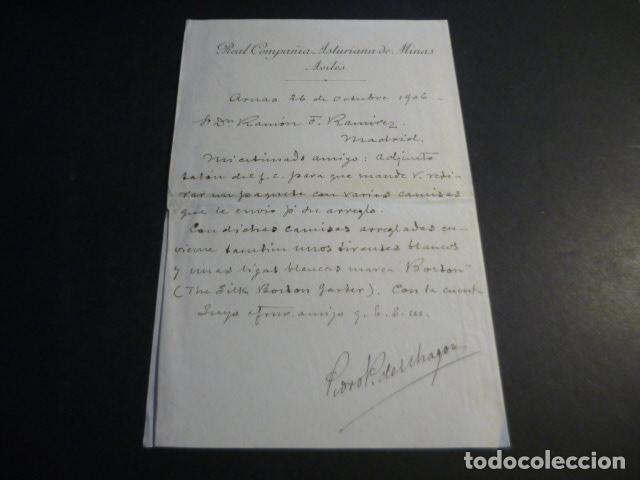 Real Compañía Asturiana de Minas
Avilés
Arnao 26 de Octubre 1906
Sr Dn Ramón F. Ramirez.
Madrid.
Mi estimado amigo: Adjunto
talón del f.c. para que mande V. reti-
rar un paquete con varias camisas
que le envio pa su arreglo.
Con dichas camisas arregladas en-
vieme tambien unos tirantes blancos
y unas ligas blancas marca "Boston"
(The Silk Boston Garter). Con la cuenta
Suyo afmo. amigo q. b. s. m.
Pedro P. de Uhagon
todocoleccion.net